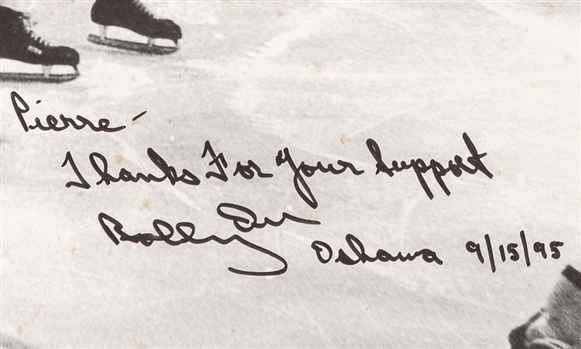 Pierre-
Thanks For Your Support
Bobby Orr
Oshawa 9/15/95